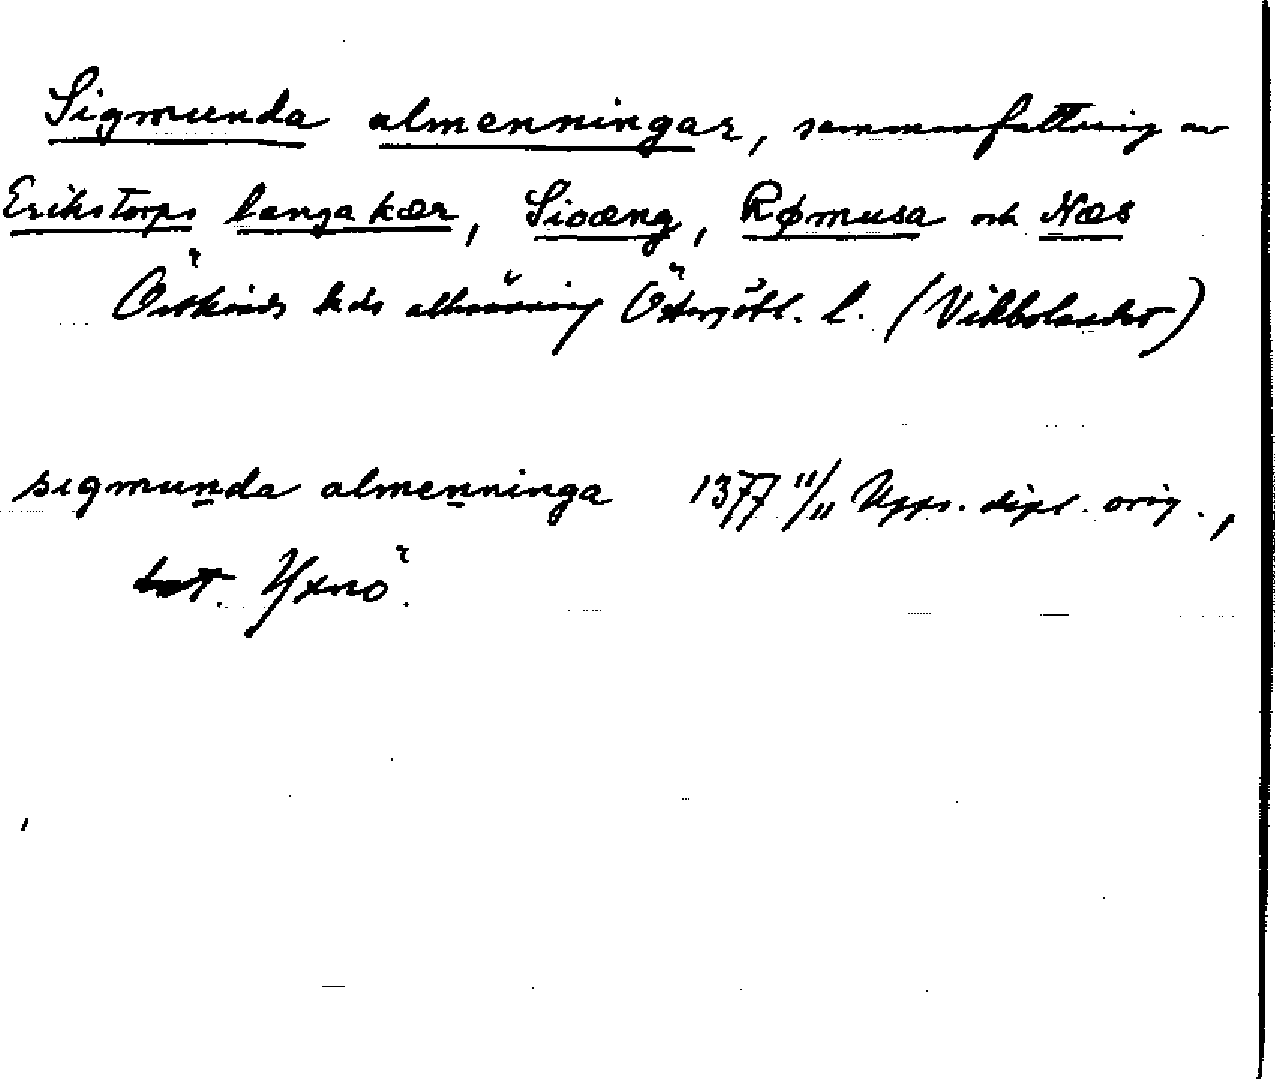 Sigmunda almenningar, sammanfattning av
Erikstorps langa kær, Sioæng, Rømusa och Næs
Östkinds hds allmänning Östergötl. l. (Vikbolandet)
sigmunda almenninga 1377 11/11 Upps. dipl. orig.,
dat. Yxnö.